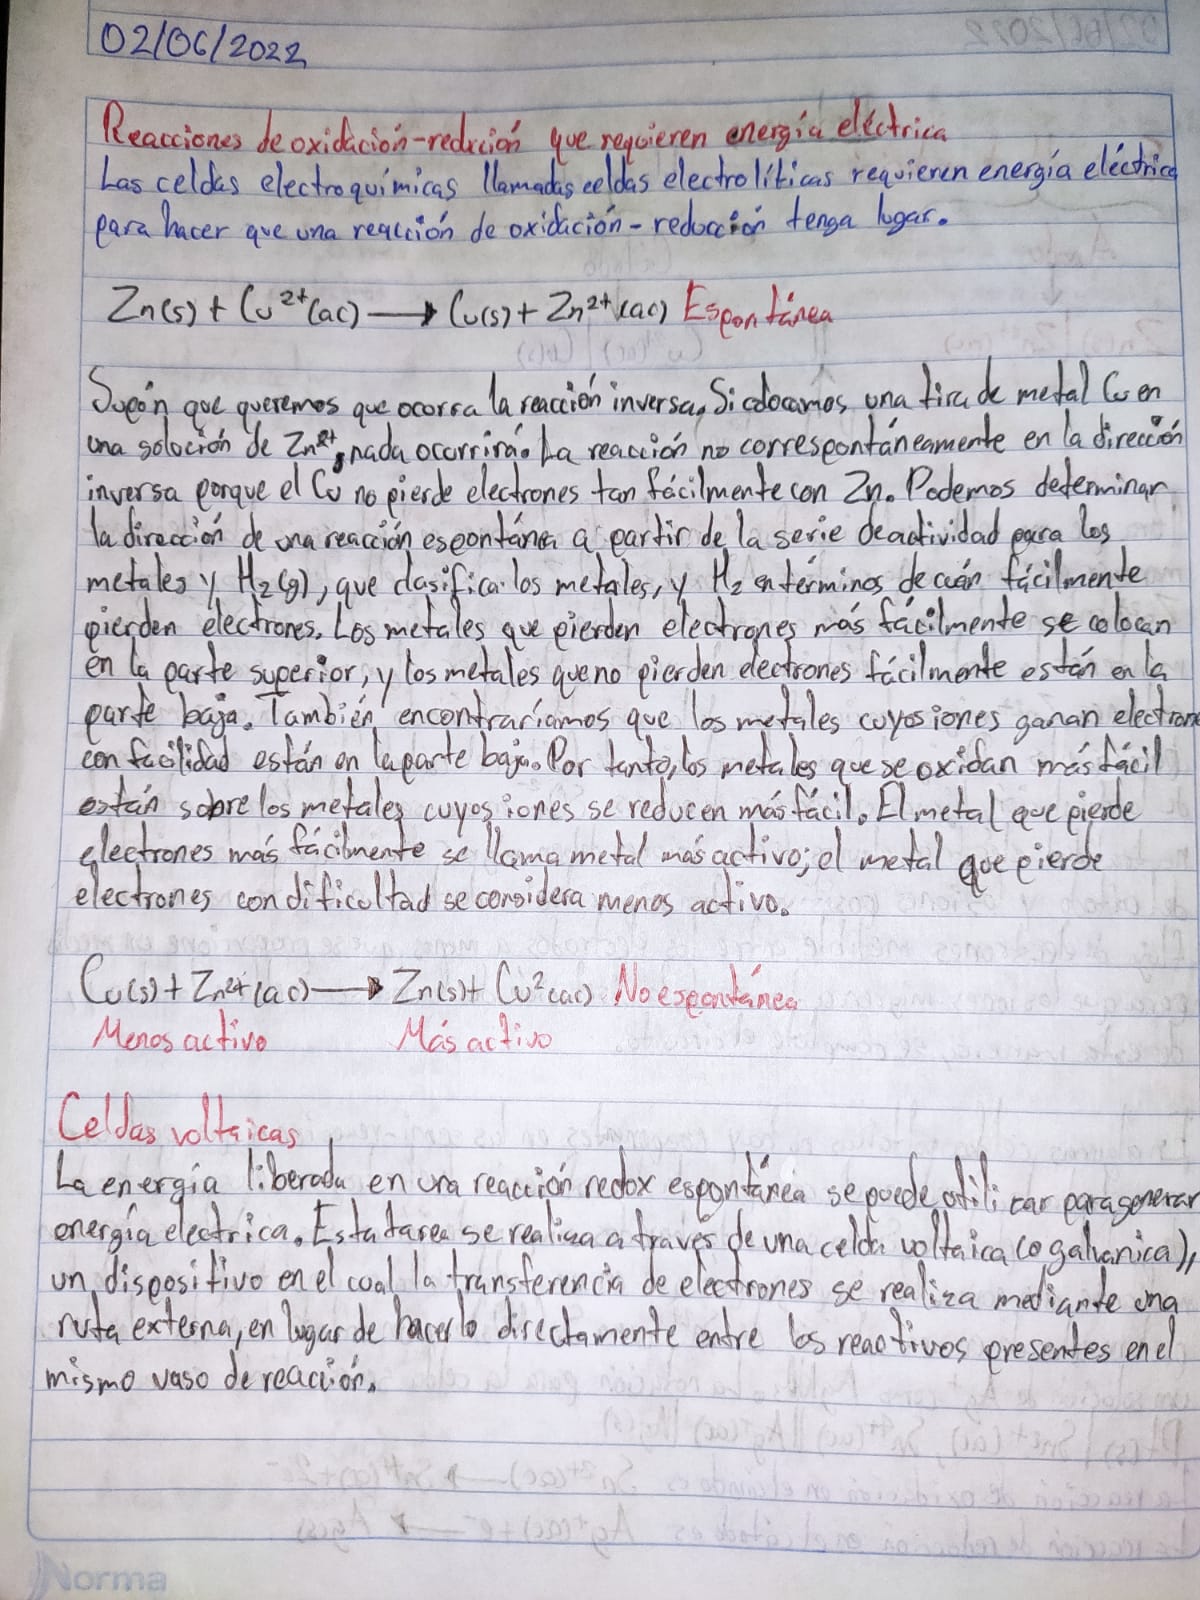 02/06/2022
Reacciones de oxidación-redución que requieren energía eléctrica
Las celdas electroquímicas llamadas celdas electrolíticas requieren energía eléctrica
para hacer que una reacción de oxidación-reducción tenga lugar.
Zn(s) + Cu²⁺(ac) → Cu(s) + Zn²⁺(ac) Espontánea
Supón que queremos que ocurra la reacción inversa. Si colocamos una tira de metal Cu en
una solución de Zn²⁺, nada ocurrirá. La reacción no corre espontáneamente en la dirección
inversa porque el Cu no pierde electrones tan fácilmente con Zn. Podemos determinar
la dirección de una reacción espontánea a partir de la serie de actividad para los
metales y H₂(g), que clasifica los metales, y H₂ en términos de cuán fácilmente
pierden electrones. Los metales que pierden electrones más fácilmente se colocan
en la parte superior, y los metales que no pierden electrones fácilmente están en la
parte baja. También encontraríamos que los metales cuyos iones ganan electrone
con facilidad están en la parte baja. Por tanto, los metales que se oxidan más fácil
están sobre los metales cuyos iones se reducen más fácil. El metal que pierde
electrones más fácilmente se llama metal más activo; el metal que pierde
electrones con dificultad se considera menos activo.
Cu(s) + Zn²⁺(ac) → Zn(s) + Cu²(ac) No espontánea
Menos activo Más activo
Celdas voltaicas
La energía liberada en una reacción redox espontánea se puede utilizar para generar
energía electrica. Esta tarea se realiza a través de una celda voltaica (o galvanica),
un dispositivo en el cual la transferencia de electrones se realiza mediante una
ruta externa, en lugar de hacerlo directamente entre los reactivos presentes en el
mismo vaso de reacción.
Norma